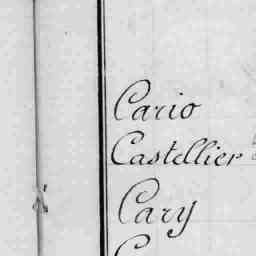 Cario
Castellier
Cary